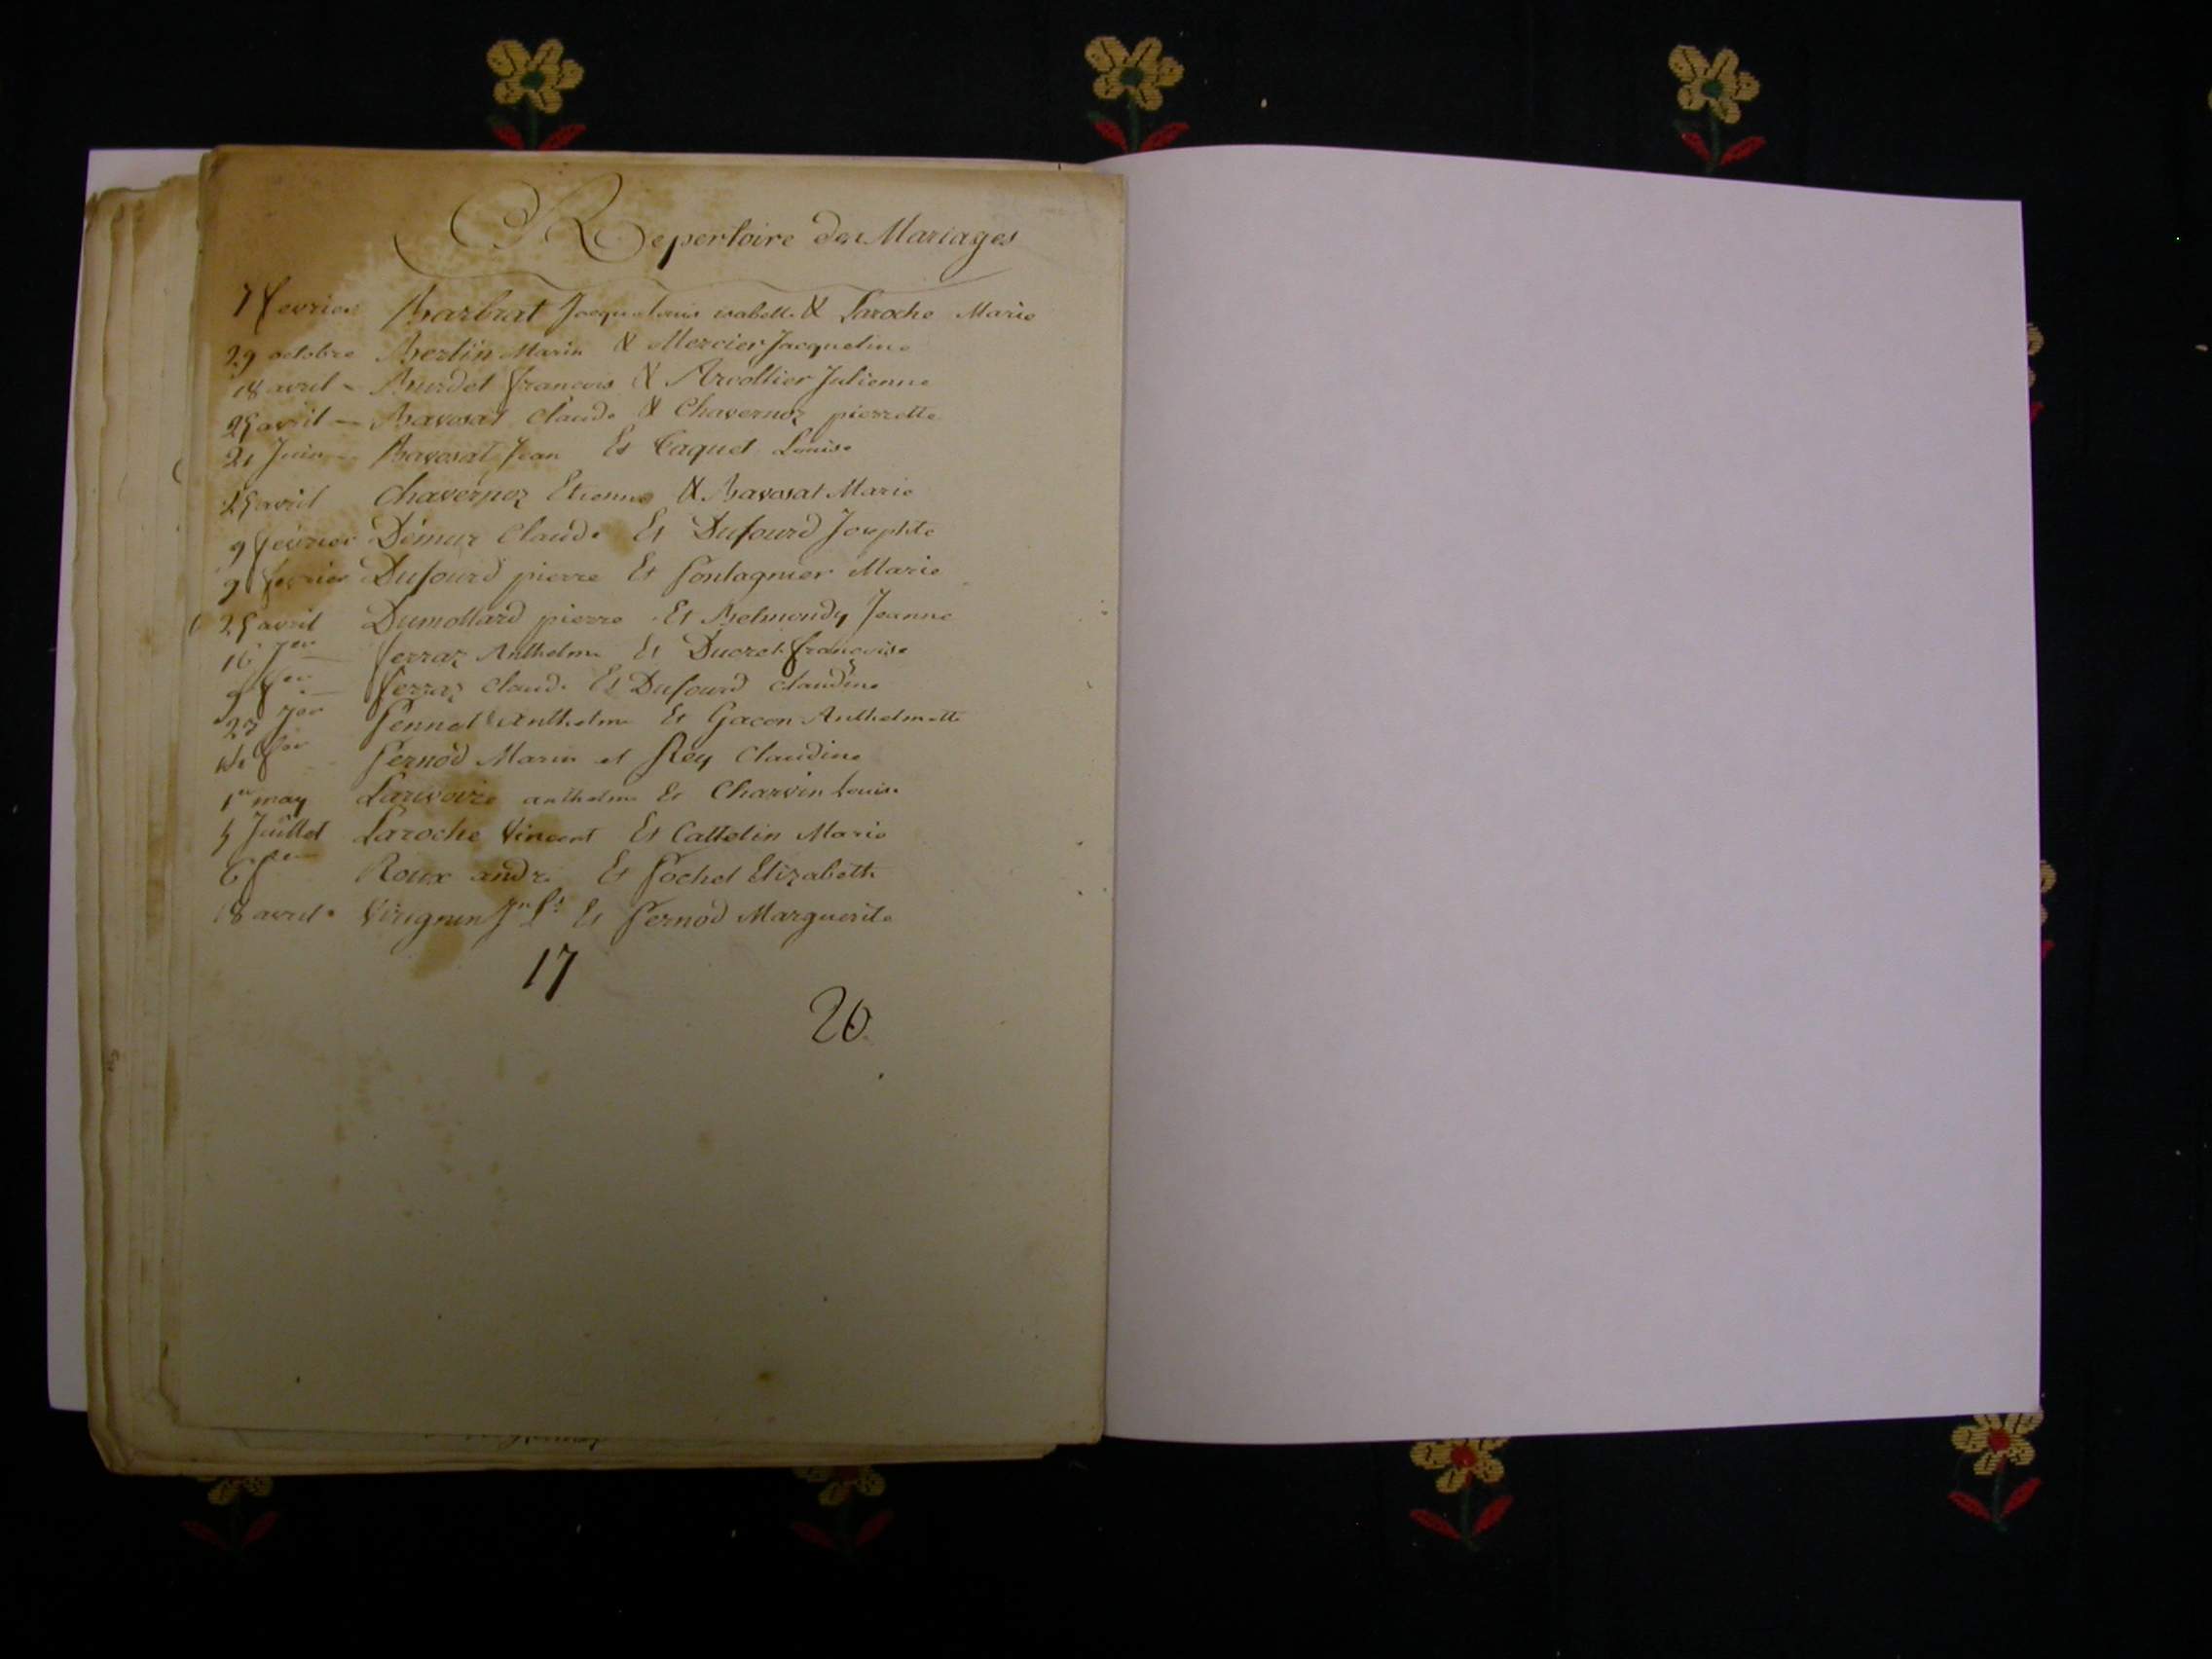 Repertoire des Mariages
7 fevrier Barbrat Jacque Louis isabelle & Laroche Marie
29 octobre Berlin Marin & Mercier Jacqueline
18 avril Burdet francois & Arcollier Julienne
25 avril Bavosat Claude & Chavernoz pierrette
21 Juin Bavosat Jean Et Caquet Louise
25 avril Chavernoz Etienne & Bavosat Marie
9 fevrier Demur Claude Et Dufourd Josephte
9 fevrier Dufourd pierre Et Marie
25 avril Dumollard pierre Et Belmondy Jeanne
16 Jer ferraz Anthelme Et Ducret francoise
9 fer ferraz Claude Et Dufourd Claudine
23 Jer Anthelme Et Gacon Anthelmette
fer Pernod Marin et Rey Claudine
1er may Larivoire anthelme Et Charvin Louise
5 Juillet Laroche Vincent Et Cattelin Marie
6 fer Roux andre Et Pochet Elizabeth
18 avril Virignin Jn Ls Et Pernod Marguerite
17
26